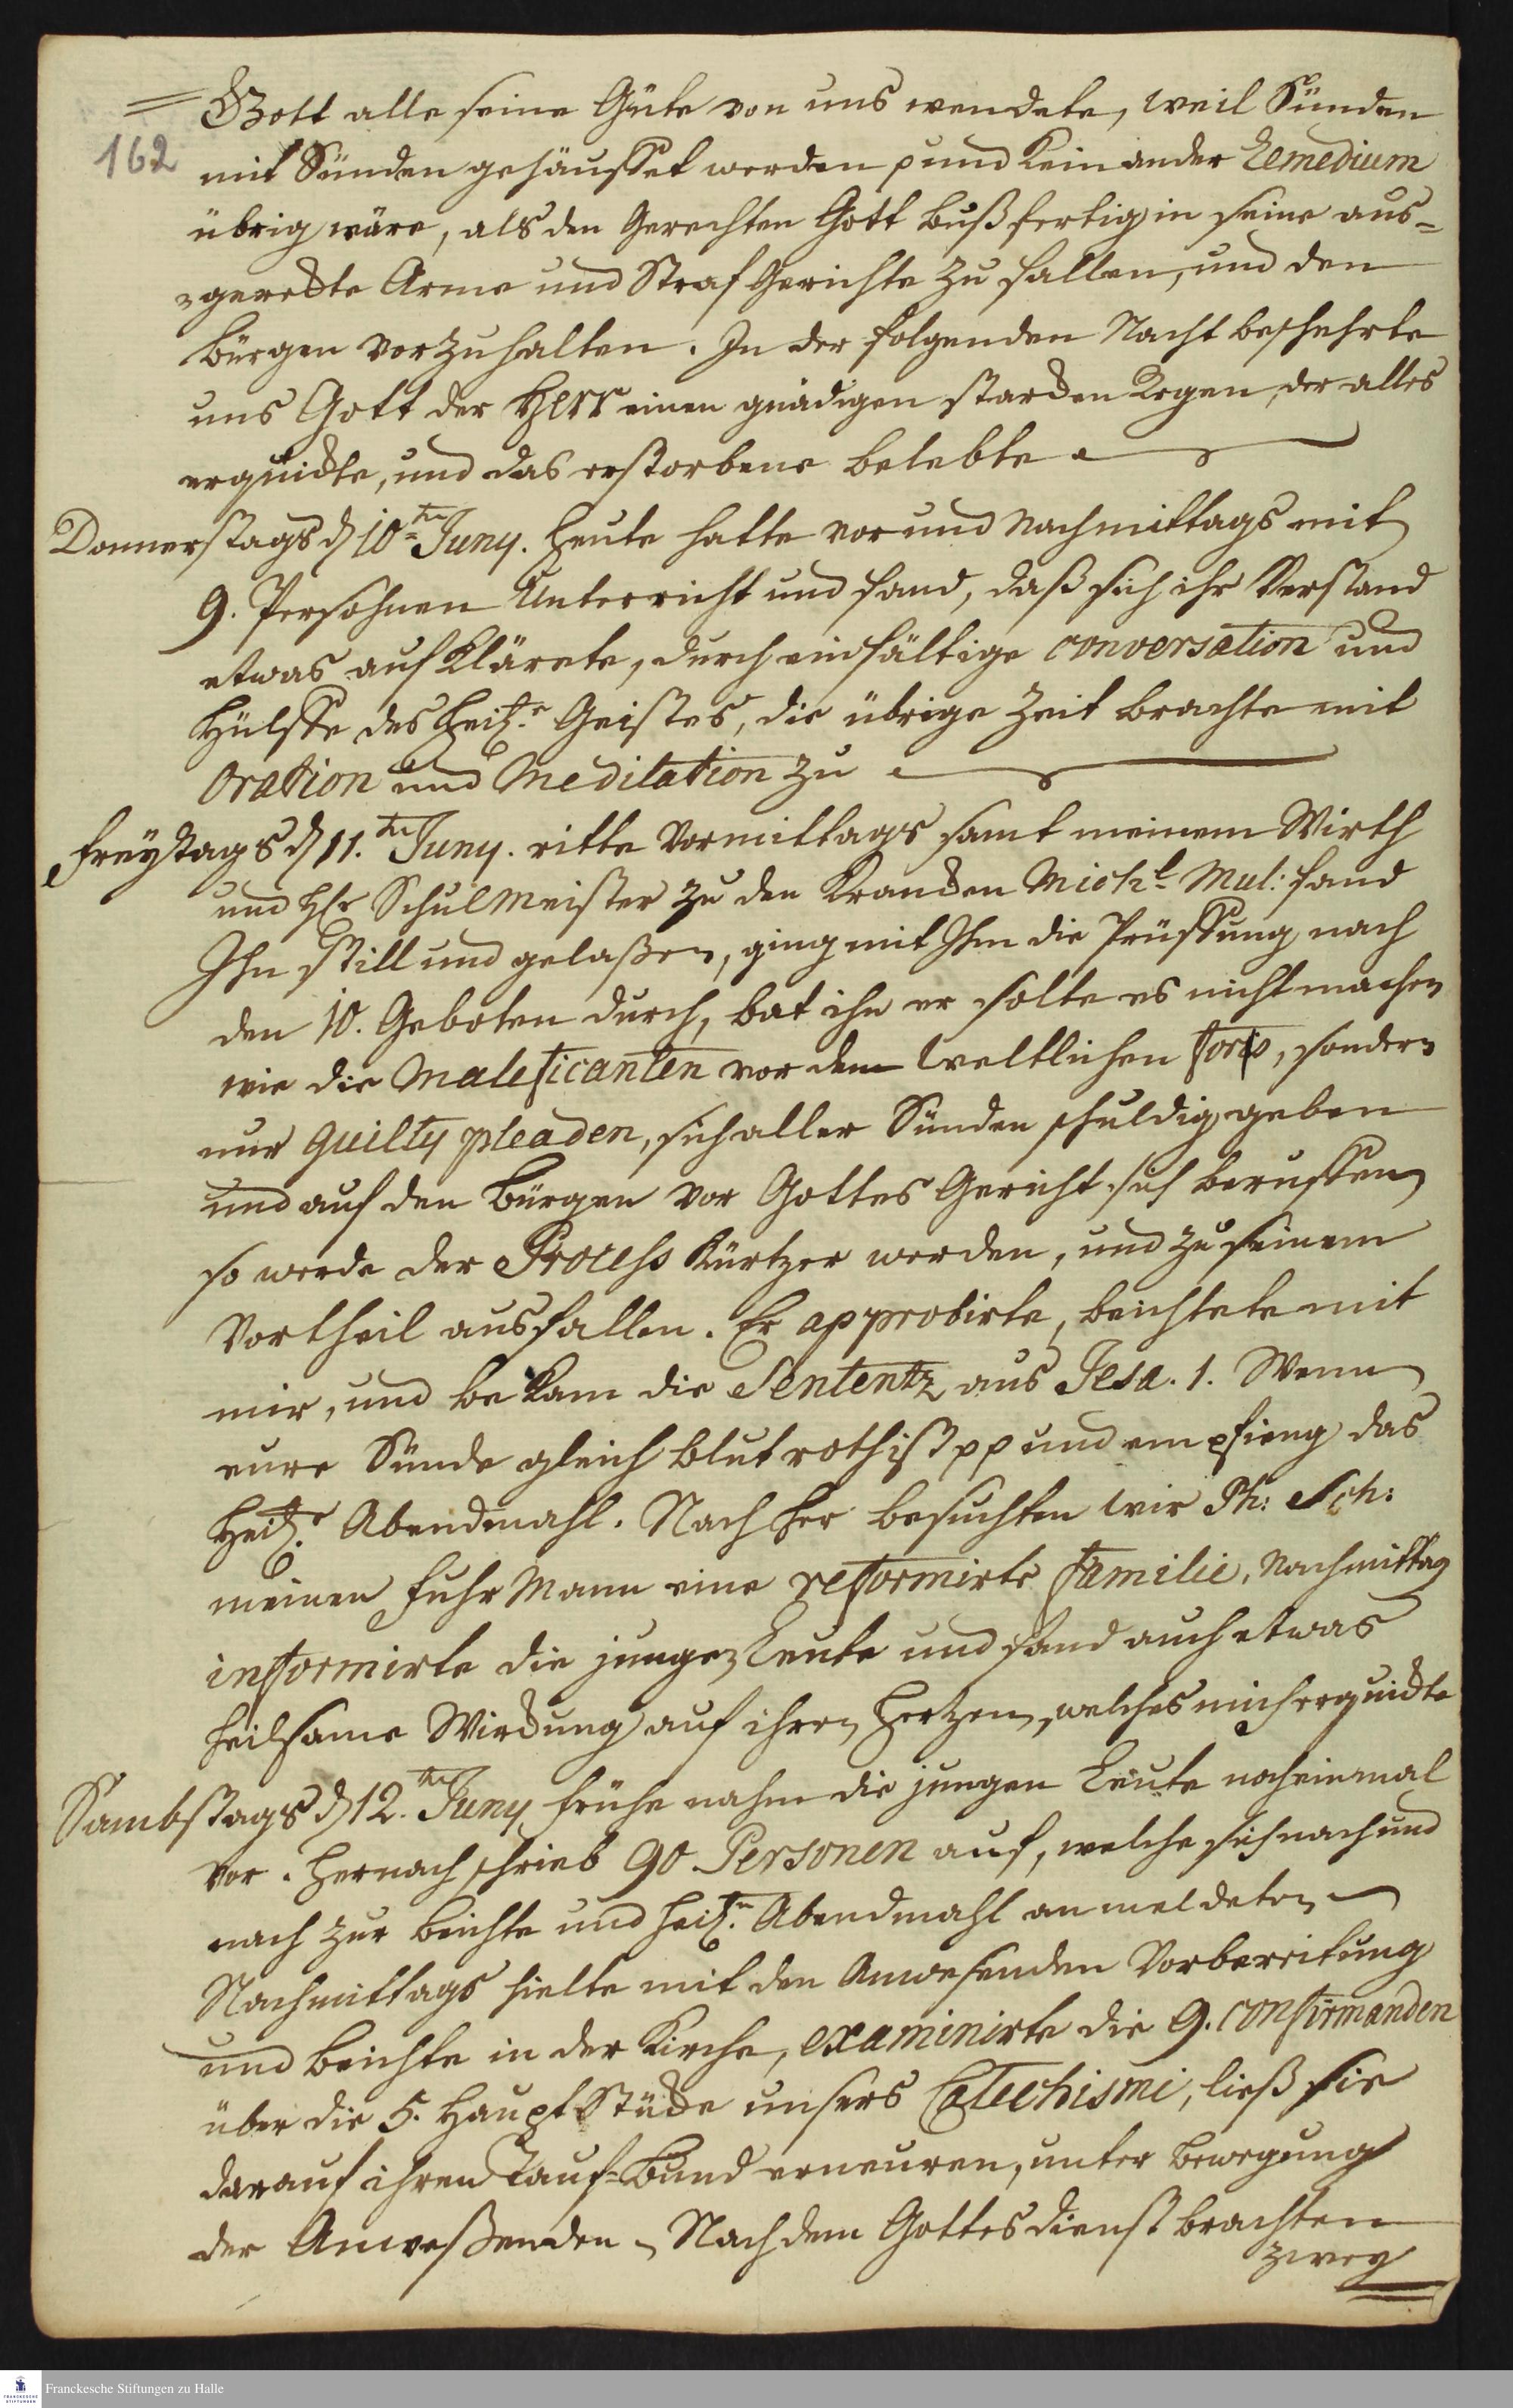 = Gott alle seine Güte von uns wendete, weil Sünden
162
mit Sünden gehäuffet werden p und kein ander Remedium
übrig wäre, als den Gerechten Gott bußfertig in seine aus=
=gereckte Arme und Straf Gerichte zu fallen, und den
Bürgen vorzuhalten. In der folgenden Nacht beschehrte
uns Gott der Herr einen gnädigen starcken Regen, der alles
erquickte, und das erstorbene belebte
Donnerstags d 10ten Juny. Heute hatte vor und Nachmittags mit
9. Persohnen Unterricht und fand, daß sich ihr Verstand
etwas auf klärete, durch einfältige conversation und
Hülffe des Heil. Geistes, die übrige Zeit brachte mit
Oration und Meditation zu
Freytags d 11.ten Juny. ritte Vormittags samt meinem Wirth
und Hr Schulmeister zu den Krancken Michl Mul: fand
Ihn still und gelaßen, ging mit Ihm die Prüffung nach
den 10. Geboten durch, bat ihn er solte es nicht machen
wie die Maleficanten vor dem Weltlichen foro, sondern
nur guilty pleaden, sich aller Sünden schuldig geben
und auf den Bürgen vor Gottes Gericht sich beruffen,
so werde der Process kürtzer werden, und zu seinem
Vortheil ausfallen. Er approbirte, beichtete mit
mir, und bekam die Sententz aus Jesa. 1. Wenn
eure Sünde gleich blutroth ist pp und empfieng das
Heil. Abendmahl. Nach her besuchten wir Ph: Sch:
meinen Fuhr Mann eine reformirte Familie, Nachmittag
informirte die jungen Leute und fand auch etwas
heilsame Wirckung auf ihren Hertzen, welches mich erquickte
Sambstags d 12.ten Juny frühe nahm die jungen Leute noch einmal
vor. Hernach schrieb 90 Personen auf, welche sich nach und
nach zur Beichte und Heil. Abendmahl anmeldeten
Nachmittags hielte mit den Anwesenden Vorbereitung
und Beichte in der Kirche, examinirte die 9. confirmanden
über die 5. Haupt Stücke unsers Catechismi, ließ sie
darauf ihren Tauf=Bund erneuren, unter Bewegung
der Anweßenden. Nach dem Gottesdienst brachten
zwey
Franckesche Stiftungen zu Halle